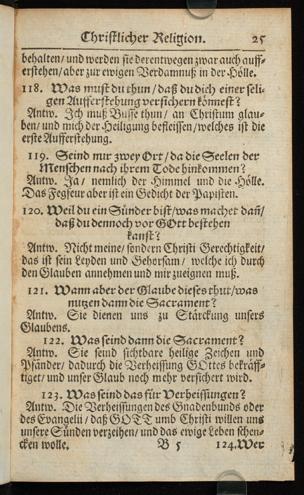 Christlicher Religion. 25
behalten/ und werden sie derentwegen zwar auch auff-
erstehen/ aber zur ewigen Verdamnuß in der Hölle.
118. Was must du thun / daß du dich einer seli-
gen Aufferstehung versichern könnest?
Antw. Ich muß Busse thun/ an Christum glau-
ben/ und mich der Heiligung befleissen/ welches ist die
erste Aufferstehung.
119. Seind nur zwey Ort/ da die Seelen der
Menschen nach ihrem Tode hinkommen?
Antw. Ja/ nemlich der Himmel und die Hölle.
Das Fegfeur aber ist ein Gedicht der Papisten.
120. Weil du ein Sünder bist/ was machet dañ/
daß du dennoch vor GOtt bestehen
kanst?
Antw. Nicht meine/ sondern Christi Gerechtigkeit/
das ist sein Leyden und Gehorsam/ welche ich durch
den Glauben annehmen und mir zueignen muß.
121. Wann aber der Glaube dieses thut/ was
nutzen dann die Sacrament?
Antw. Sie dienen uns zu Stärckung unsers
Glaubens.
122. Was seind dann die Sacrament?
Antw. Sie seind sichtbare heilige Zeichen und
Pfänder/ dadurch die Verheissung GOttes bekräff-
tiget/ und unser Glaub noch mehr versichert wird.
123. Was seind das für Verheissungen?
Antw. Die Verheissungen des Gnadenbunds oder
des Evangelii/ daß GOTT umb Christi willen uns
unsere Sünden verzeihen/ und das ewige Leben schen-
cken wolle. B 5 124. Wer